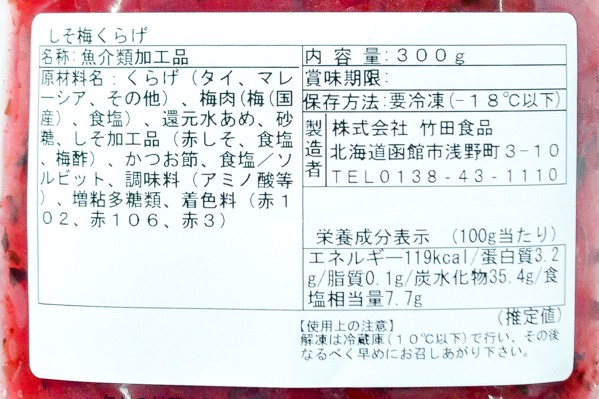 しそ梅くらげ
名称:魚介類加工品
原材料名:くらげ(タイ、マレ
ーシア、その他)、梅肉(梅(国
産)、食塩)、還元水あめ、砂
糖、しそ加工品(赤しそ、食塩
、梅酢)、かつお節、食塩/ソ
ルビット、調味料(アミノ酸等
)、増粘多糖類、着色料(赤1
02、赤106、赤3)
内容量:300g
賞味期限:
保存方法:要冷凍(-18℃以下)
製造者
株式会社 竹田食品
北海道函館市浅野町3-10
TEL0138-43-1110
栄養成分表示 (100g当たり)
エネルギー119kcal/蛋白質3.2
g/脂質0.1g/炭水化物35.4g/食
塩相当量7.7g
(推定値)
【使用上の注意】
解凍は冷蔵庫(10℃以下)で行い、その後
なるべく早めにお召しあがり下さい。